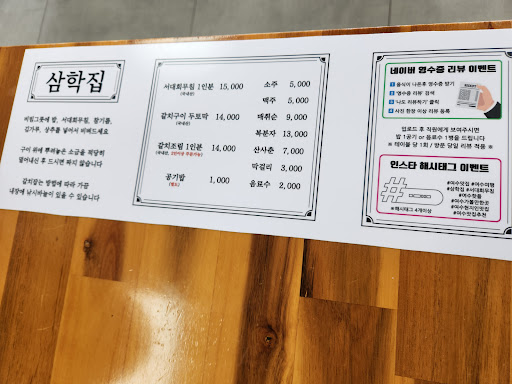 삼학집
비빔그릇에 밥, 서대회무침, 참기름,
김가루, 상추를 넣어서 비벼드세요
구이 위에 뿌려놓은 소금을 적당히
털어내신 후 드시면 짜지 않습니다
갈치잡는 방법에 따라 가끔
내장에 낚시바늘이 있을 수 있습니다
서대회무침 1인분 15,000
(국내산)
갈치구이 두토막 14,000
(국내산)
갈치조림 1인분 14,000
(국내산, 2인이상 주문가능)
공기밥 1,000
(별도)
소주 5,000
맥주 5,000
매취순 9,000
복분자 13,000
산사춘 7,000
막걸리 3,000
음료수 2,000
네이버 영수증 리뷰 이벤트
1 음식이 나온후 영수증 받기
2 '영수증 리뷰' 검색
3 '나도 리뷰하기' 클릭
4 사진 한장 이상 리뷰 등록
업로드 후 직원에게 보여주시면
밥 1공기 or 음료수 1병을 드립니다
※ 테이블 당 1회 / 방문 당일 리뷰 적용 ※
인스타 해시태그 이벤트
#여수맛집 #여수여행
#삼학집 #서대회무침
#여수핫플
#여수가볼만한곳
#여수현지인맛집
#여수맛집추천
※해시태그 4개이상